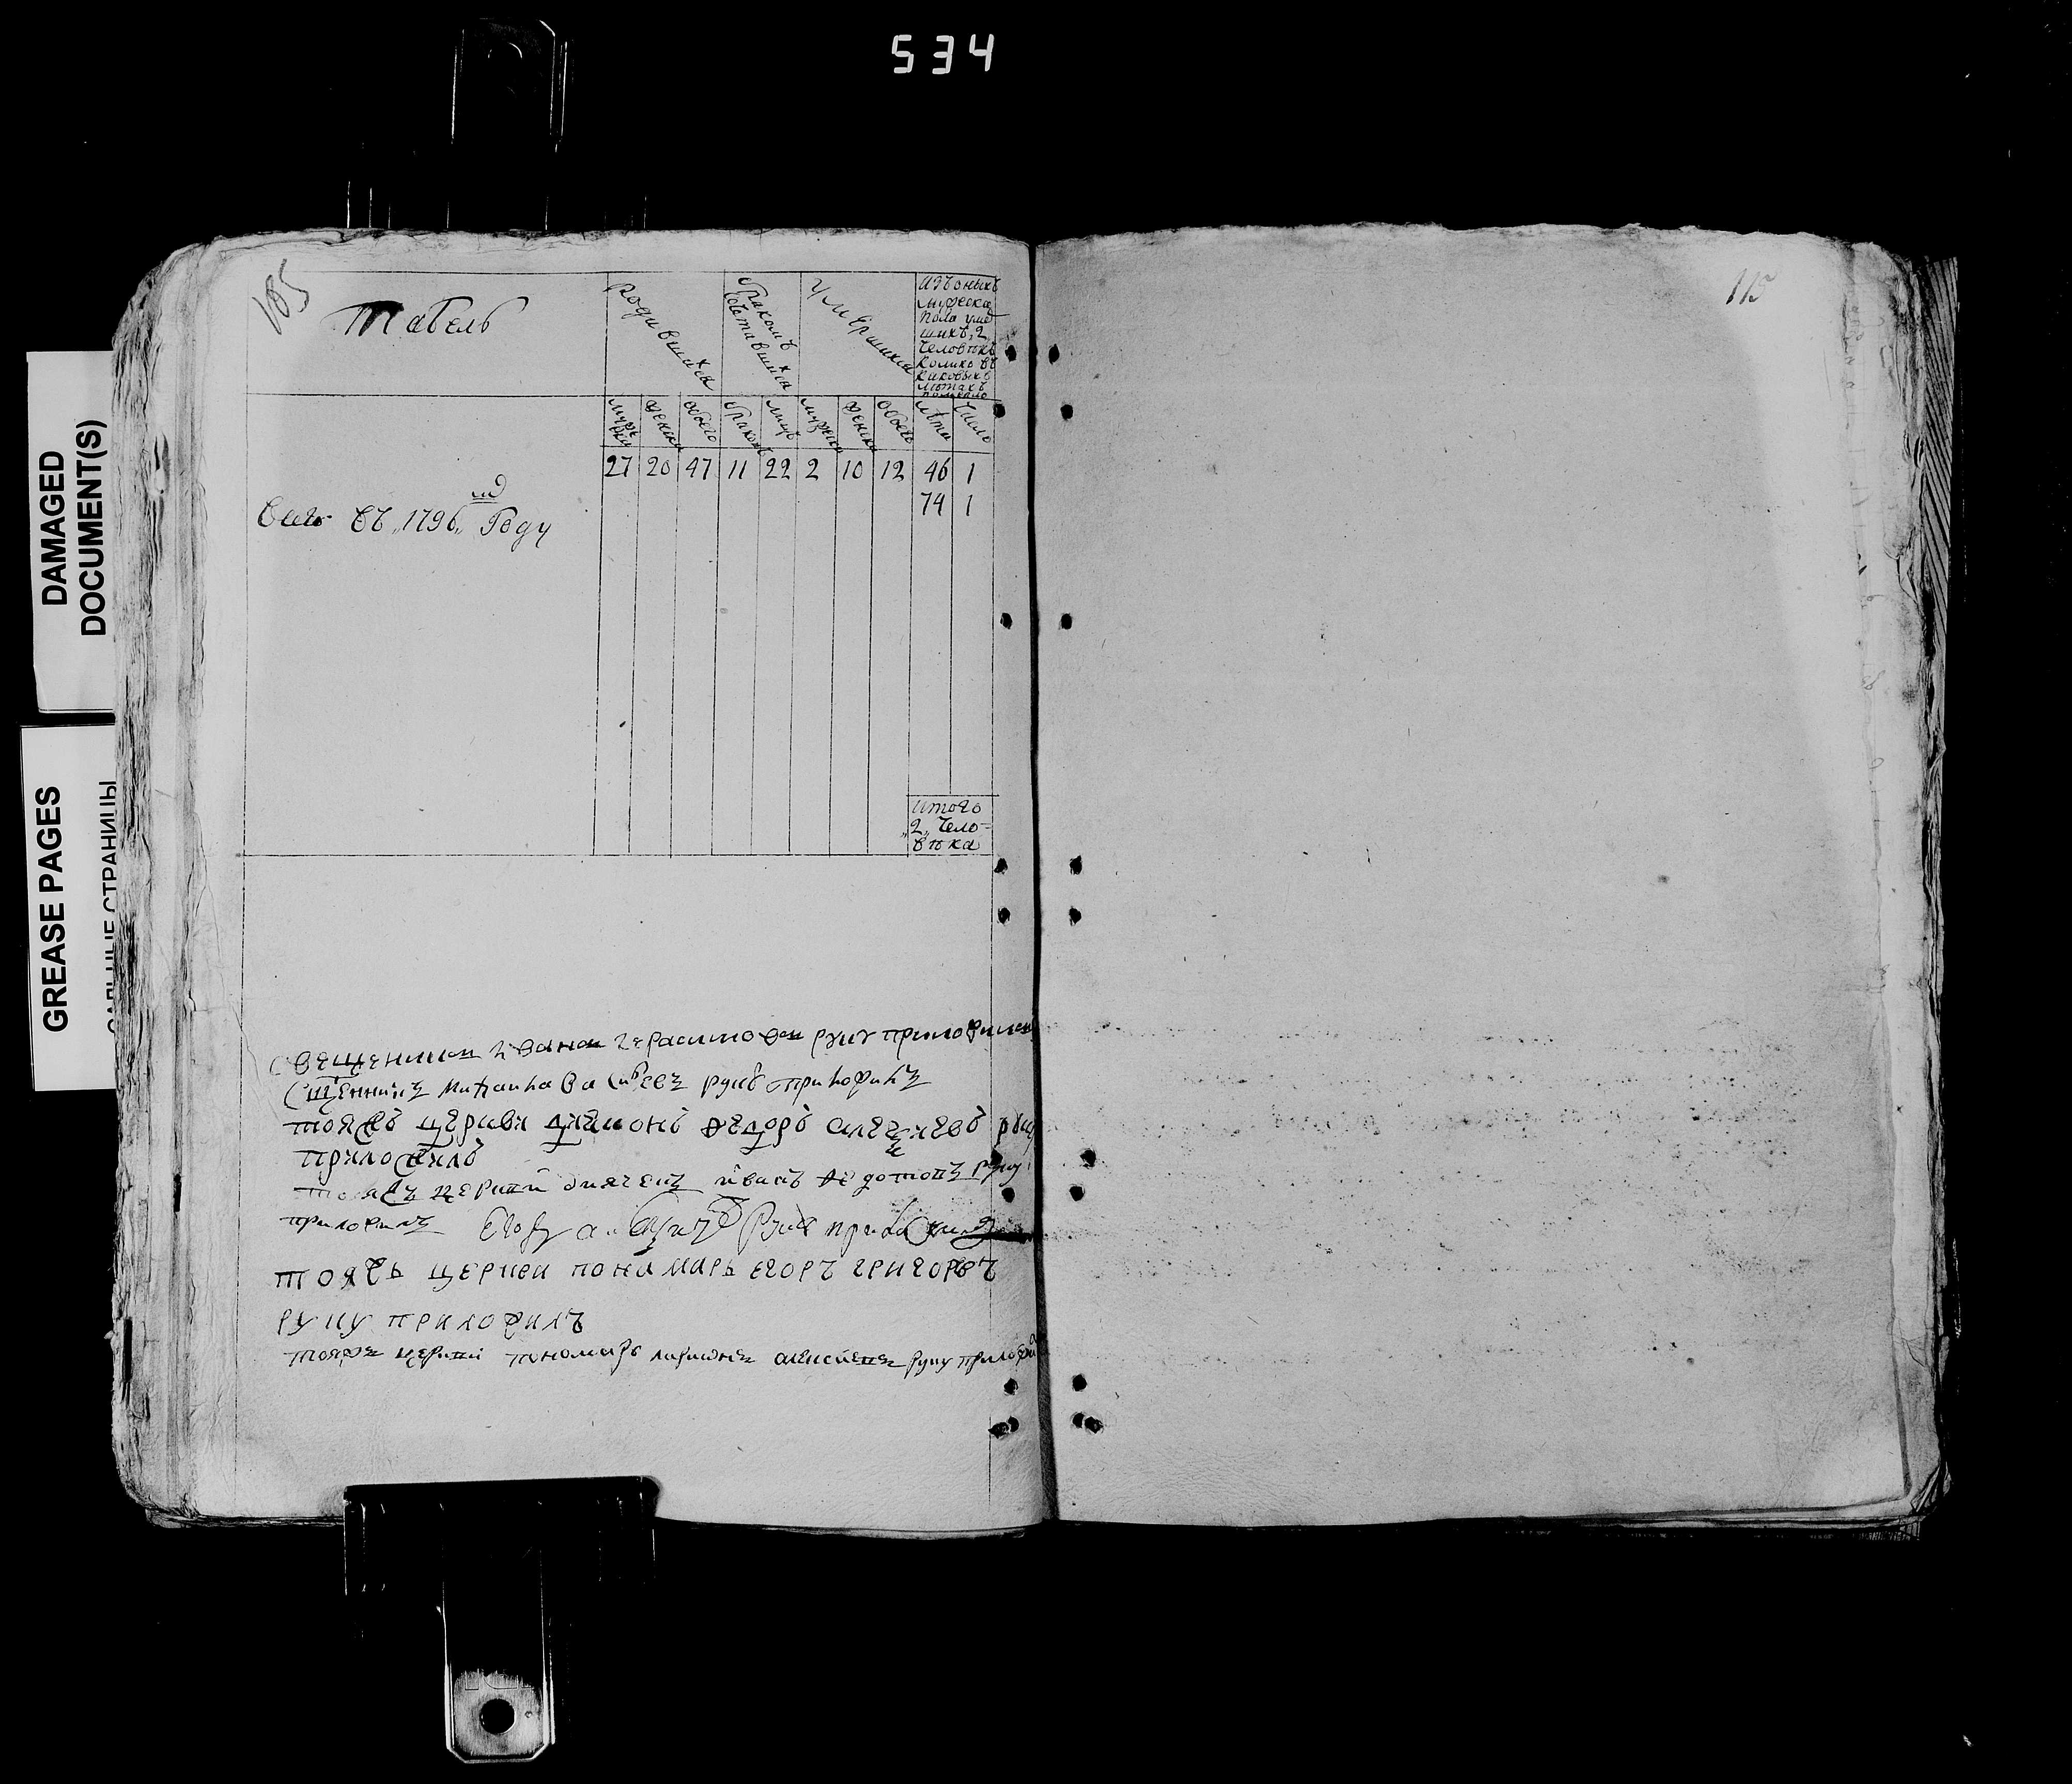 534
DAMAGED
DOCUMENT(S)
GREASE PAGES
САЛЬНЫЕ СТРАНИЦЫ
185
115
Табель
родившихся
бракомъ
сочетавшихся
Умершихъ
мужеска
пола
человѣкъ
колико въ
каковыхъ
лѣтахъ
женска
обоего
браковъ
лицъ
мужеска
женска
обоего
лѣта
число
27 20 47 11 22 2 10 12 46 1
74 1
Всего въ „1796„ мъ Году
итого
„2„ чело-
вѣка
Священникъ Иванъ Герасимовъ руку приложилъ
Сщенникъ Михаила Васильевъ руку приложилъ
тояжъ церкви диаконъ Ѳедоръ Алеѯѣевъ руку
приложилъ
тояжъ церкви дьячекъ иванъ Ѳедотовъ руку
приложилъ руку приложилъ
тояжъ церкви пономарь Егоръ григорьевъ
руку приложилъ
тояжъ церкви пономарь алексѣевъ руку приложилъ